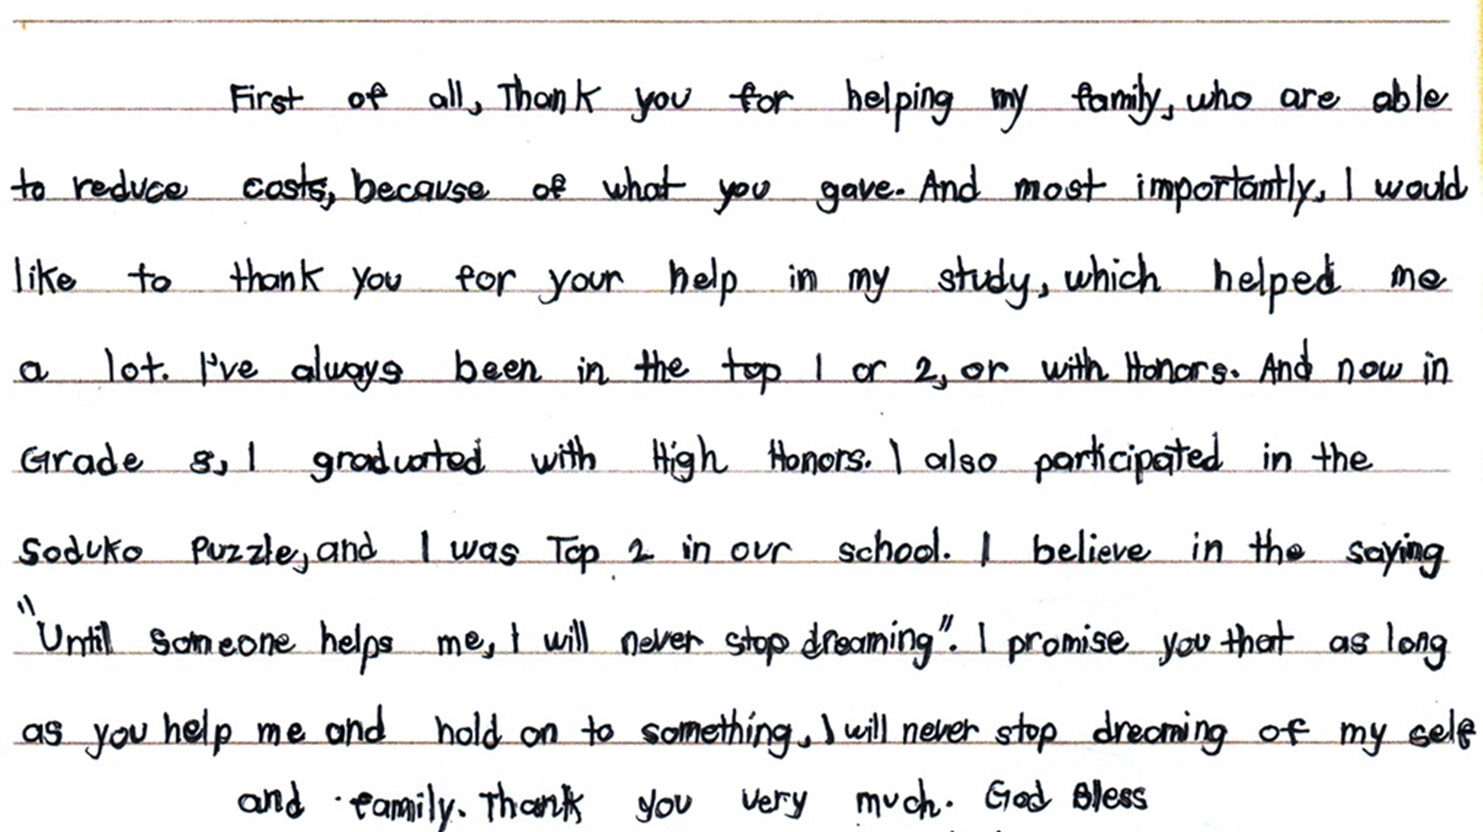 First of all, Thank you for helping my family, who are able
to reduce costs, because of what you gave. And most importantly, I would
like to thank you for your help in my study, which helped me
a lot. I've always been in the top 1 or 2, or with Honors. And now in
Grade 8, I graduated with High Honors. I also participated in the
Soduko Puzzle, and I was Top 2 in our school. I believe in the saying
"Until someone helps me, I will never stop dreaming". I promise you that as long
as you help me and hold on to something, I will never stop dreaming of my self
and family. Thank you very much. God Bless